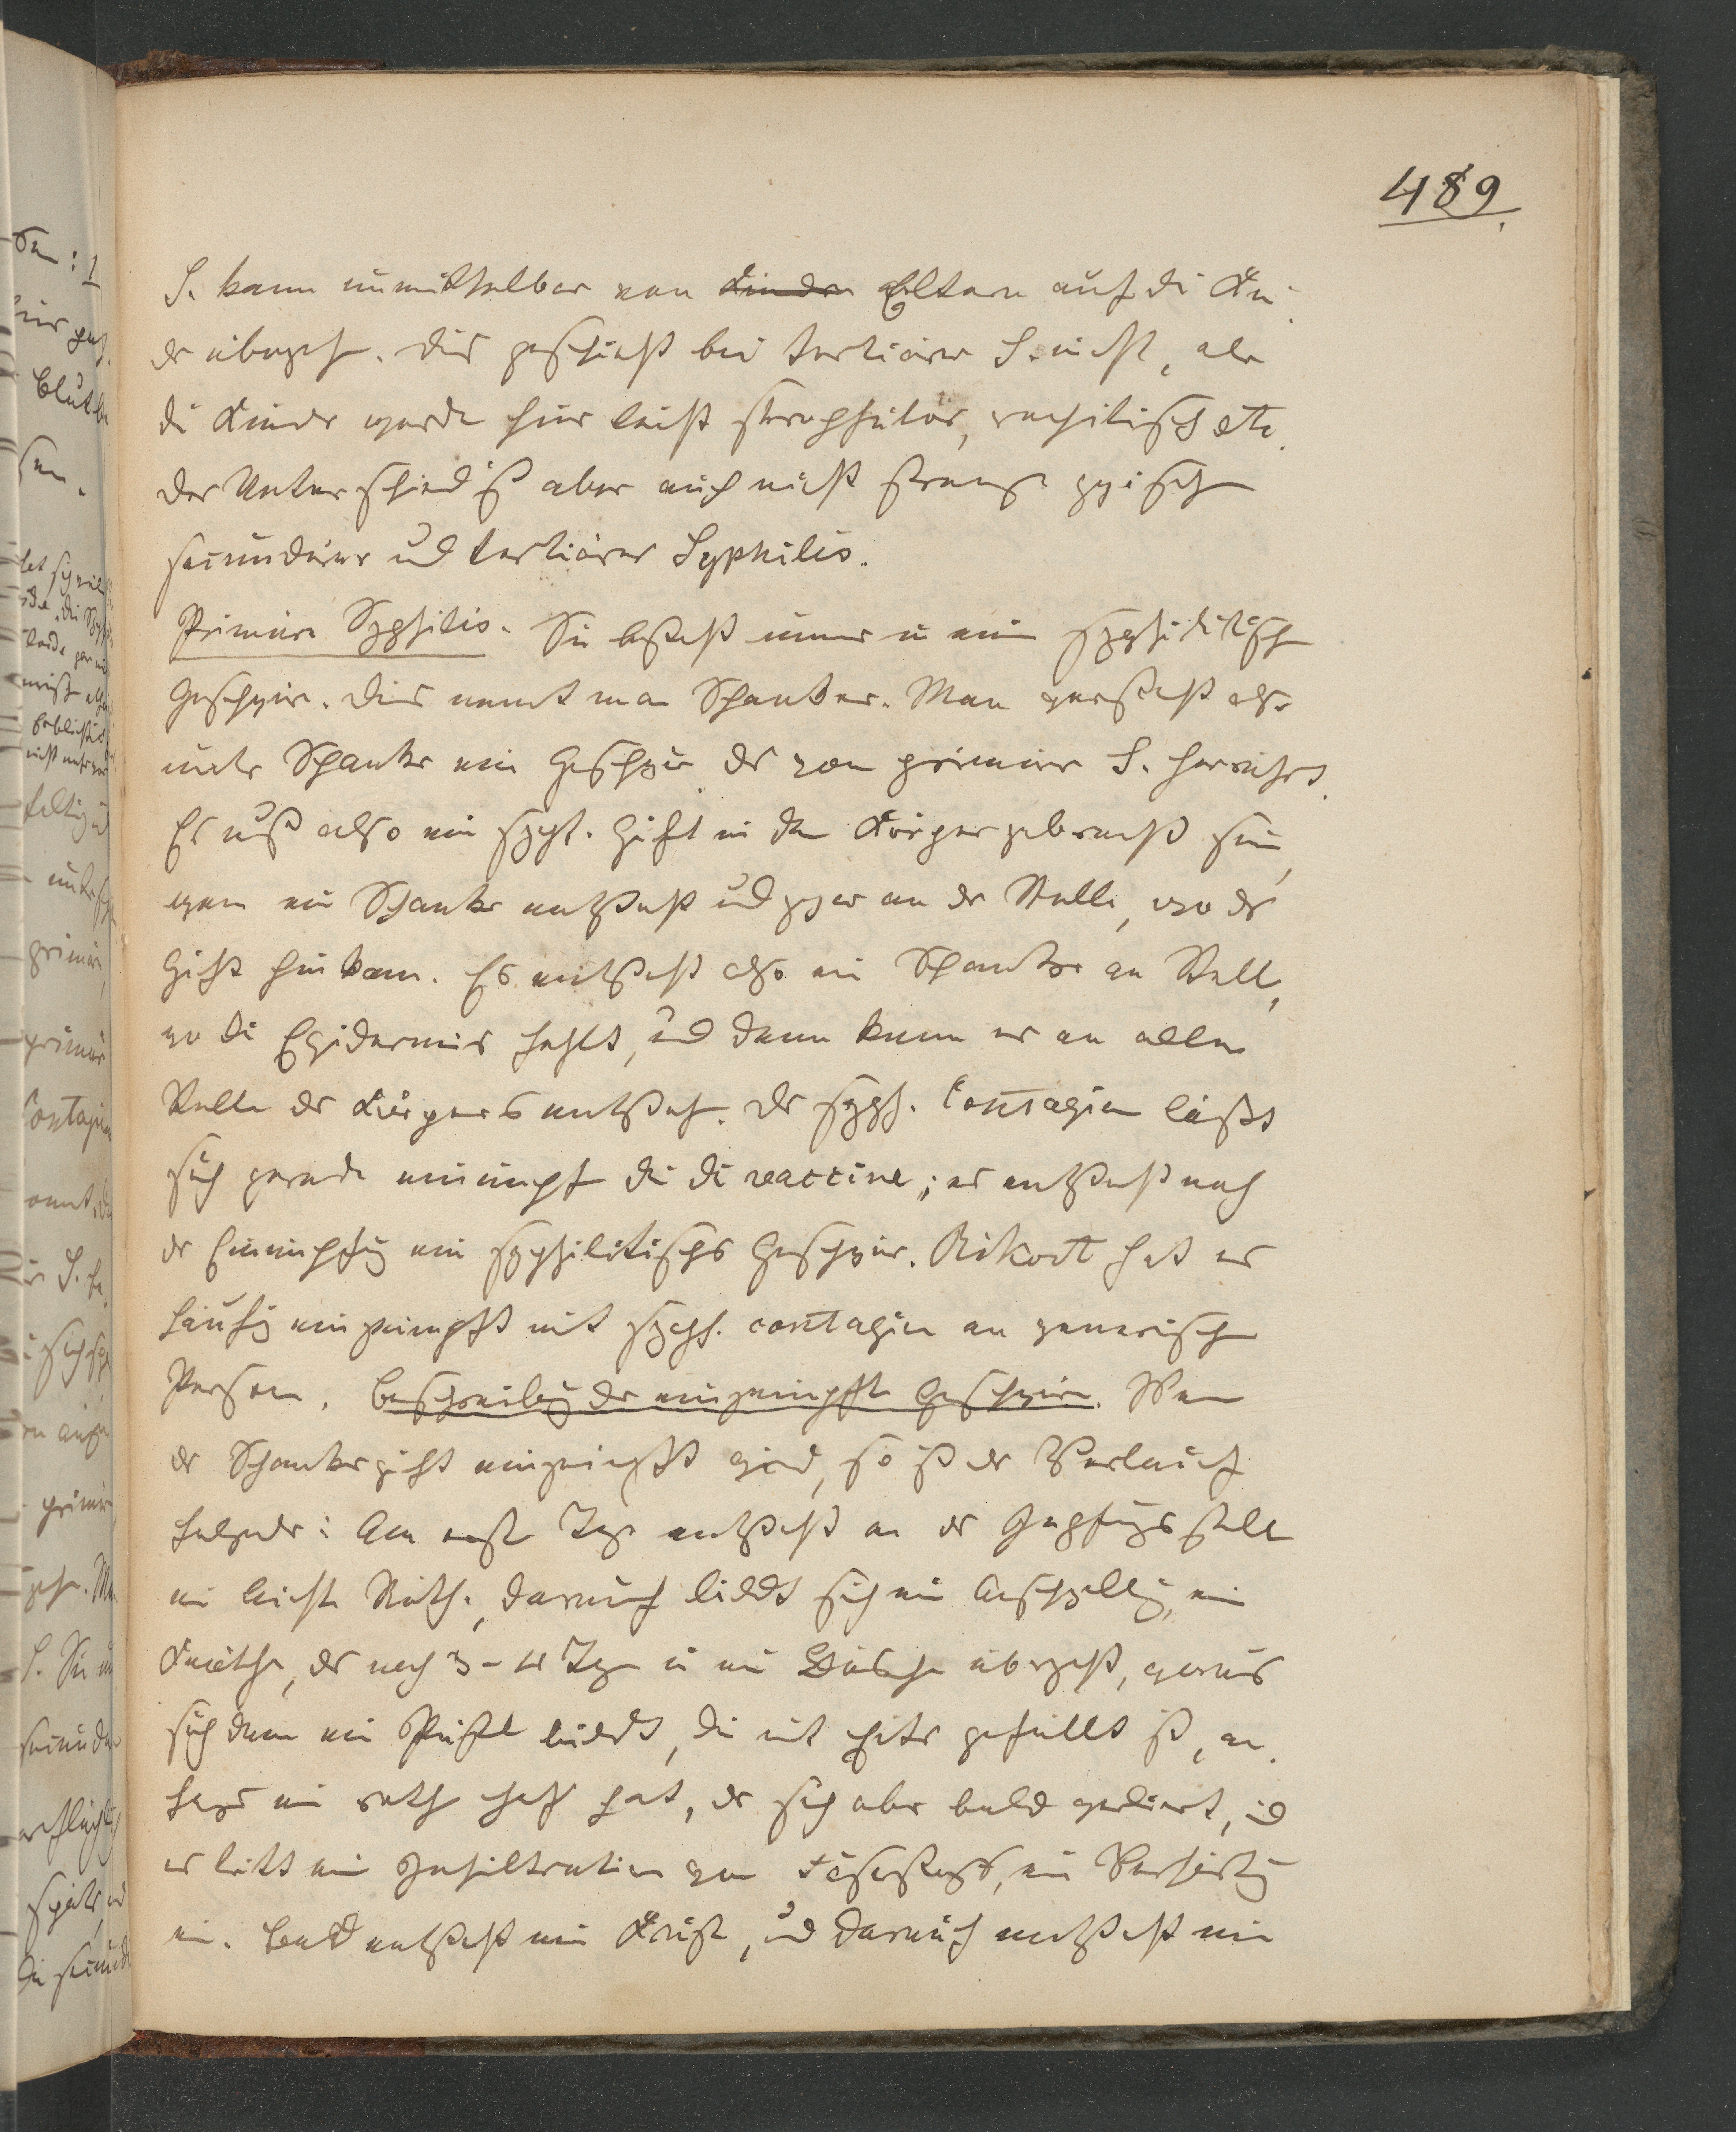 489.
S. kann unmittelbar von Kinder Eltern auf die Kin-
der übergeh. Dies geschieht bei tertiärer S. nicht, aber
die Kinder werde hier leicht skrophulös, rachitisch etc.
Der Unterschied ist aber auch nicht strenge zwisch
secundärer und tertiärer Syphilis.
Primäre Syphilis. Sie besteht immer in ein syphilitisch
Geschwür. Dies nennt man Schanker. Man versteht also
unter Schanker ein Geschwür, das von primärer S. herrührt.
Es muß also ein syph. Gift in den Körper gebracht sein,
wenn ein Schanker entsteht und zwar an der Stelle, wo das
Gift hinkam. Es entsteht also ein Schanker an Stell,
wo die Epidermis fehlt, und dann kann er an allen
Stelle des Körpers entsteh. Das syph. Contagium läßt
sich gerade einimpf wie die vaccine; es entsteht nach
der Einimpfung ein syphilitisches Geschwür. Rikort hat es
häufig eingeimpft mit syph. contagium an venerisch
Person. Beschreibung des eingeimpft Geschwürs. Wenn
das Schankergift eingeimpft wird, so ist der Verlauf
folgender: Am erst Tage entsteht an der Impfungsstelle
ein leichte Röthe, darauf bildet sich ein Anschwellung, ein
Knötche, das nach 3-4 Tage in ein Bläsche übergeht, woraus
sich dann ein Pustel bildet, die mit Eiter gefüllt ist, an-
fangs ein roth Hof hat, der sich aber bald verliert, und
es tritt ein Infiltration von Faserstoff, ein Verhärtung
ein. Bald entsteht ein Kruste, und darauf entsteht ein